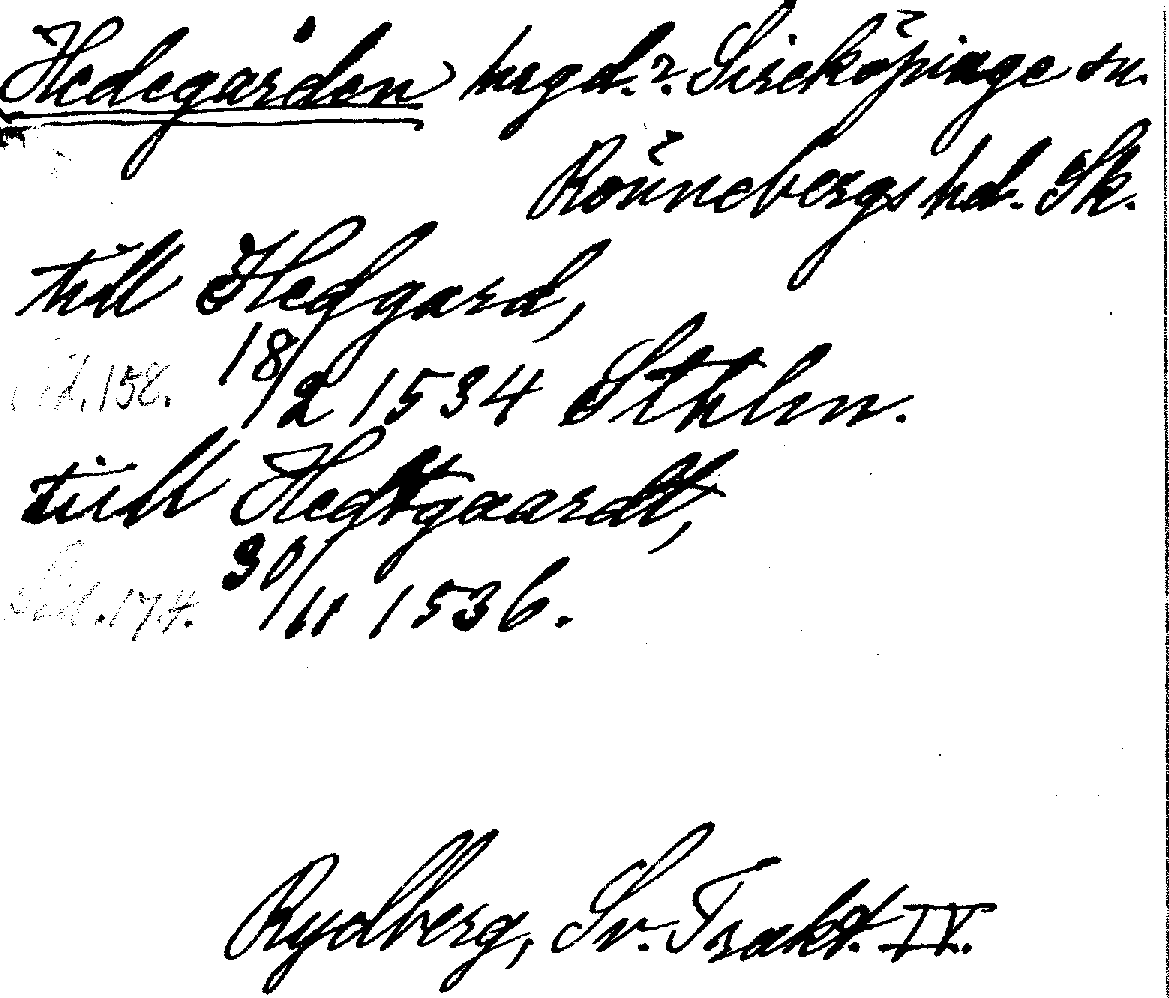 Hedegården hrgd.? Sireköpinge sn.
Rönnebergs hd. Sk.
till Hedgard,
Sid. 158. 18/2 1534 Sthlm.
till Hedtgaardt,
Sid. 174. 30/11 1536.
Rydberg, Sv. Trakt. IV.